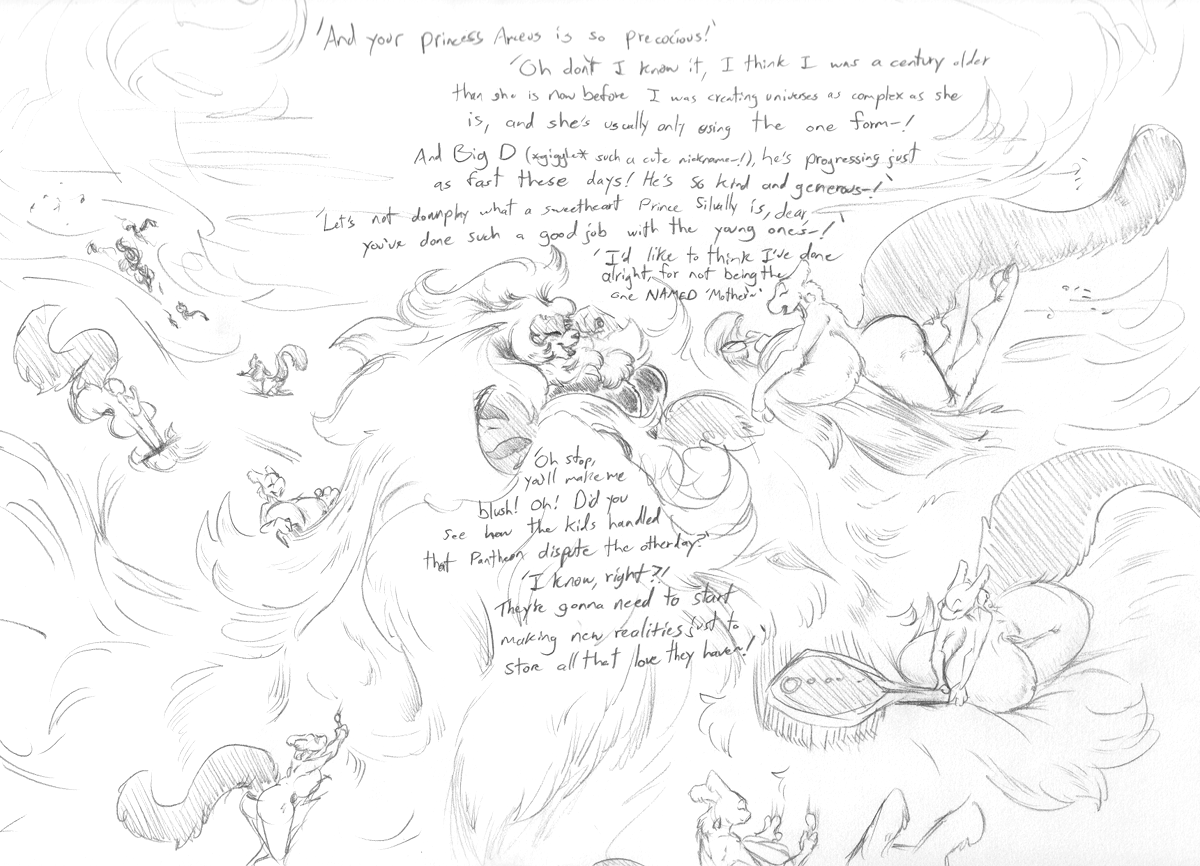 'And your princess Arceus is so precocious!'
'Oh don't I know it, I think I was a century older
then she is now before I was creating universes as complex as she
is, and she's usually only using the one form~!
And Big D (*giggle* such a cute nickname~!), he's progressing just
as fast these days! He's so kind and generous~!'
'Let's not downplay what a sweetheart Prince Silvally is, dear,
you've done such a good job with the young ones~!'
'I'd like to think I've done
alright, for not being the
one NAMED 'Mother'~'
'Oh stop,
you'll make me
blush! Oh! Did you
see how the kids handled
that Pantheon dispute the other day?'
'I know, right?!
They're gonna need to start
making new realities just to
store all that love they have~!'